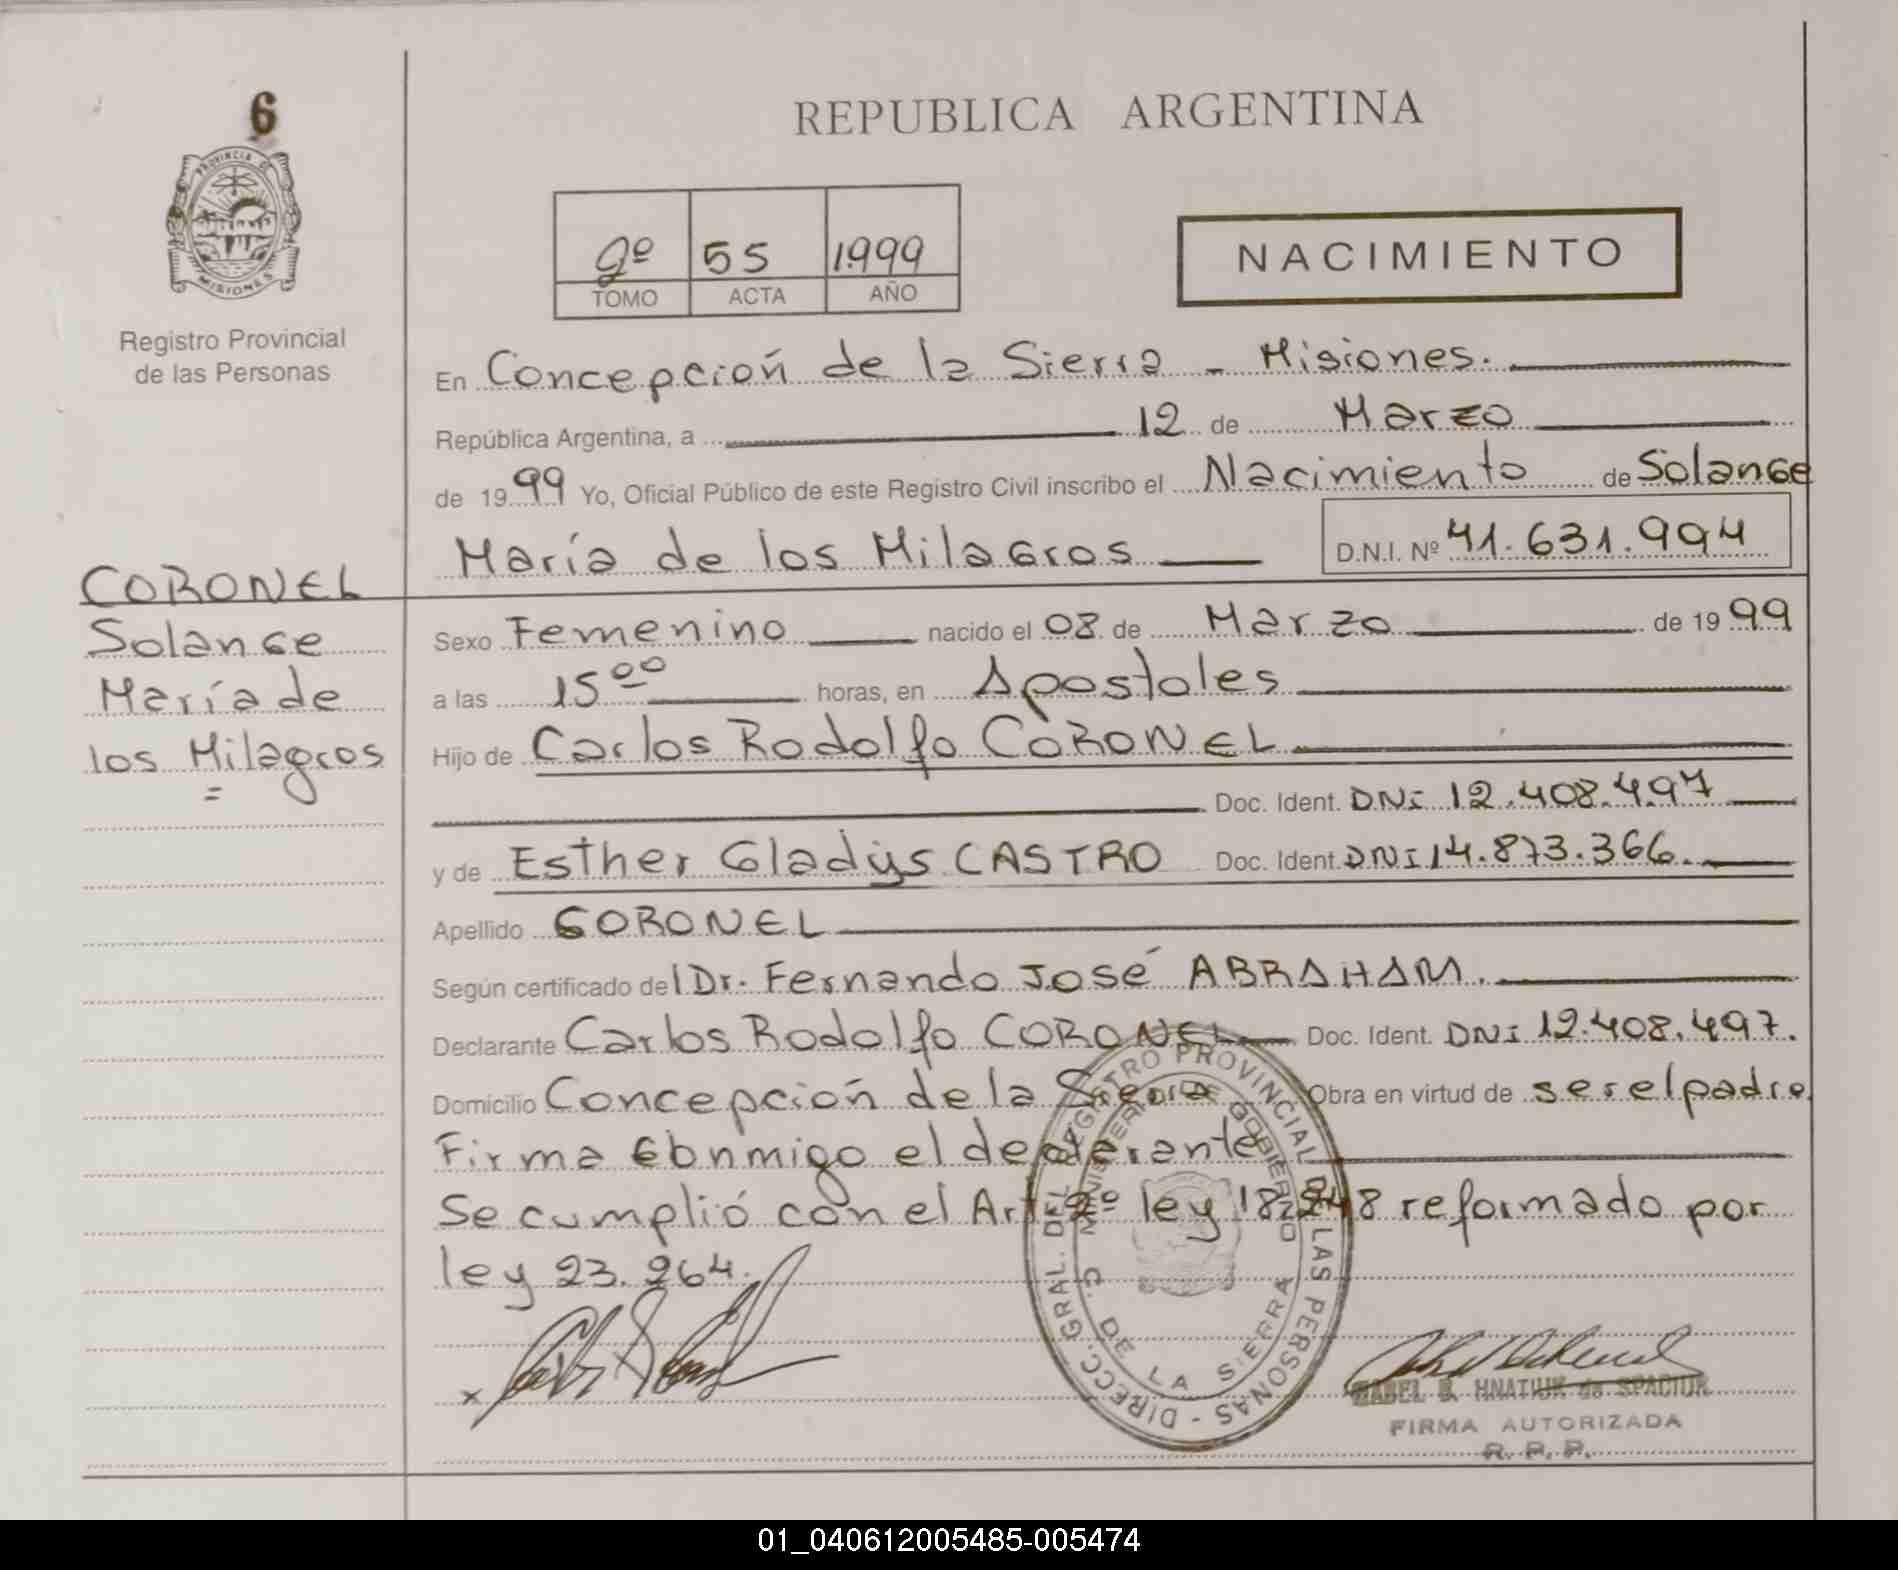 6
PROVINCIA DE
MISIONES
Registro Provincial
de las Personas
REPUBLICA ARGENTINA
2º 55 1999
TOMO ACTA AÑO
NACIMIENTO
En Concepción de la Sierra - Misiones.
República Argentina, a 12 de Marzo
de 1999 Yo, Oficial Público de este Registro Civil inscribo el Nacimiento de Solange
María de los Milagros D.N.I. Nº 41.631.994
CORONEL
Solange
María de
los Milagros
Sexo Femenino nacido el 08 de Marzo de 1999
a las 15⁰⁰ horas, en Apostoles
Hijo de Carlos Rodolfo CORONEL
Doc. Ident. DNI 12.408.497
y de Esther Gladys CASTRO Doc. Ident. DNI 14.873.366.
Apellido CORONEL
Según certificado del Dr. Fernando José ABRAHAM.
Declarante Carlos Rodolfo CORONEL Doc. Ident. DNI 12.408.497.
Domicilio Concepción de la Sierra Obra en virtud de ser el padre.
Firma conmigo el declarante
Se cumplió con el Art. 2º ley 18.248 reformado por
ley 23.264.
DIRECC. GRAL. DEL REGISTRO PROVINCIAL DE LAS PERSONAS -
MINISTERIO DE GOBIERNO
C. DE LA SIERRA
x
ISABEL B. HNATIUK de SPACIUK
FIRMA AUTORIZADA
R. P. P.
01_040612005485-005474